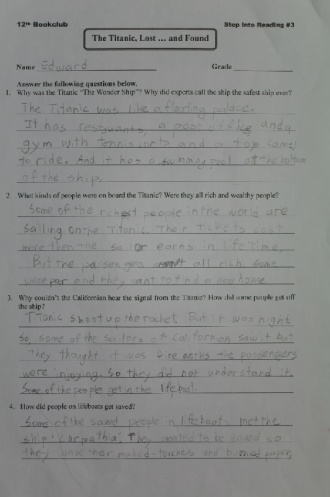 12th Bookclub
Step Into Reading #3
The Titanic, Lost ... and Found
Name Edward
Grade
Answer the following questions below.
1. Why was the Titanic "The Wonder Ship"? Why did experts call the ship the safest ship ever?
The Titanic was like a floating palace.
It has a post office and a
gym with
to ride. And it has a pool at the bottom
of the ship.
2. What kinds of people were on board the Titanic? Were they all rich and wealthy people?
Some of the richest people in the world are
sailing on the Titanic. Their tickets cost
more then the sailor earns in life time.
But the all rich some
were poor and they want to find a new home.
3. Why couldn't the Californian hear the signal from the Titanic? How did some people get off
the ship?
Titanic shoot up the rocket. But it was night
so some of the sailors of Californian saw it but
They thought it was the passengers
were injoying. So they did not understand it.
Some of the people get in the life boat.
4. How did people on lifeboats get saved?
Some of the saved people in lifeboats met the
ship "Carpathia". They to be saved so
they and burned paper.